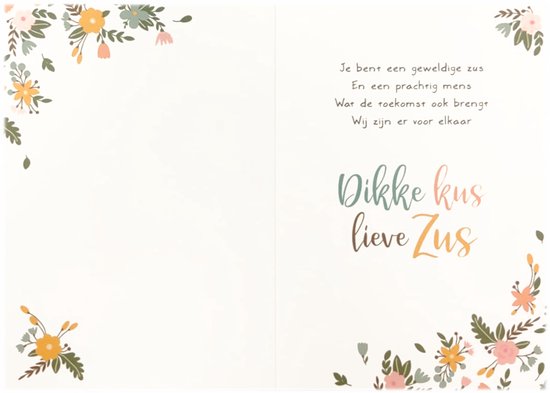 Je bent een geweldige zus
En een prachtig mens
Wat de toekomst ook brengt
Wij zijn er voor elkaar
Dikke kus
lieve Zus